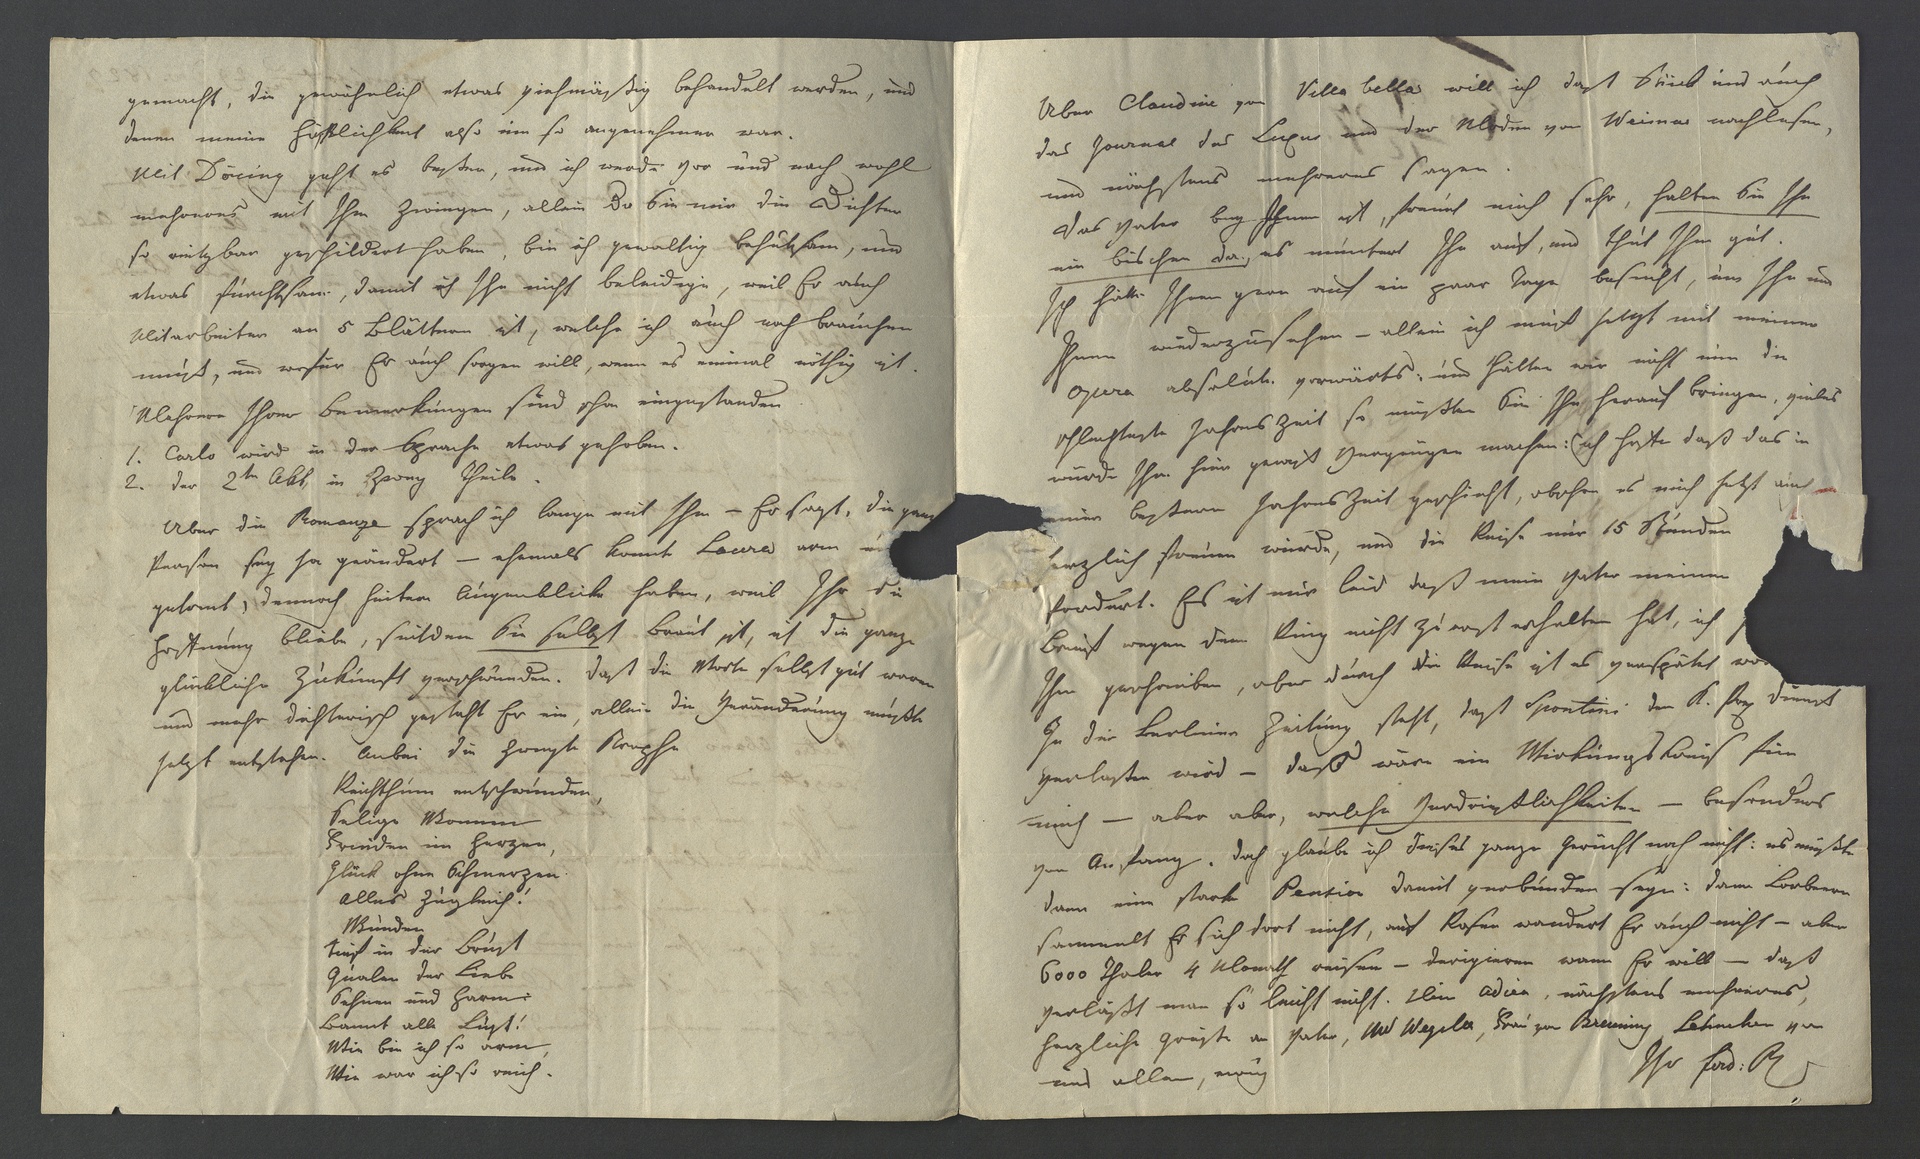 gemacht, die gewöhnlich etwas viehmäßig behandelt werden, und
denen meine Höfflichkeit also um so angenehmer war.
Mit Döring geht es besser, und ich werde vor und nach wohl
mehreres mit Ihm zwingen, allein Da Sie mir die Dichter
so reitzbar geschildert haben, bin ich gewaltig behutsam, und
etwas furchtsam, damit ich Ihn nicht beleidige, weil Er auch
Mitarbeiter an 5 Blättern ist, welche ich auch noch brauchen
muß, und wofür Er auch sorgen will, wenn es einmal nöthig ist.
Mehrere Ihrer Bemerkungen sind schon eingestanden
1. Carlo wird in der Sprache etwas gehoben.
2. der 2te Akt, in Zwey Theile.
Über die Romanze sprach ich lange mit Ihm – Er sagt, die ganze
Person sey ja geändert – ehemals konnte Laura arm
dennoch heitere Augenblicke haben, weil Ihr die
Hoffnung bliebe, seitdem Sie selbst Braut ist, ist die ganze
glückliche Zukunft verschwunden. Daß die Worte selbst gut waren
und mehr dichterisch gesteht Er ein, allein die Veränderung müßte
jetzt entstehen. Anbei die zweyte Strophe
Reichthum entschwunden,
Selige Wonnen
Freuden im Herzen,
Glück ohne Schmerzen
alles zugleich!
Wunden
tief in der Brust
Qualen der Liebe
Sehnen und Harm
Bannt alle Lust!
Wie bin ich so arm,
Wie war ich so reich.
Über Claudine von Villa bella will ich das Stück und auch
das Journal des Luxus und der Moden von Weimar nachlesen,
und nächstens mehreres sagen.
Das Vater bey Ihnen ist, freut mich sehr, halten Sie Ihn
ein bischen da, es muntert Ihn auf, und thut Ihm gut.
Ich hätte Ihnen gern auf ein paar Tage besucht, um Ihn und
Ihnen wiederzusehen – allein ich muß jetzt mit meiner
Opera absolut vorwärts: und hätten wir nicht nun die
schlechteste Jahres Zeit so müßten Sie Ihn herauf bringen, vieles
würde Ihm hier gewiß Vergnügen machen: (ich hoffe daß das in
einer bessern Jahres Zeit geschieht, obschon es mich jetzt auch
herzlich freuen würde, und die Reise nur 15 Stunden
fordert. Es ist mir leid daß mein Vater meinen
Brief wegen dem Ring nicht zuerst erhalten hat, ich
Ihm geschrieben, aber durch die Reise ist es verspätet
In der Berliner Zeitung steht, daß Spontini den K. Prß Dienst
verlassen wird – daß wäre ein Wirkungskreis für
mich – aber aber, welche Verdrießlichkeiten – besonders
von Anfang. Doch glaube ich dieses ganze Gerücht noch nicht: es müßte
dann eine starke Pension damit verbunden seyn: denn Lorbeern
sammelt Er sich dort nicht, auf Rosen wandert Er auch nicht – aber
6000 Thaler 4 Monath reisen – dirigieren wann Er will – daß
verläßt man so leicht nicht. Nun adieu, nächstens mehreres,
herzliche Grüße an Vater, Md Wegeler, Frau von Breuning Lehnchen von
uns allen, ewig
Ihr Ferd: R